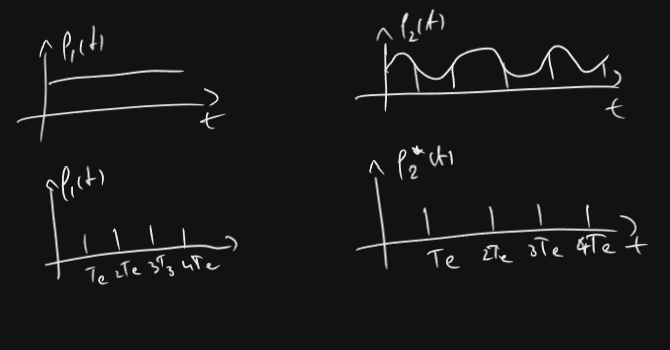 ρ₁(t)
t
ρ₂(t)
t
ρ₁(t)
Te 2Te 3T₃ 4Te
ρ₂*(t)
Te 2Te 3Te 4Te t